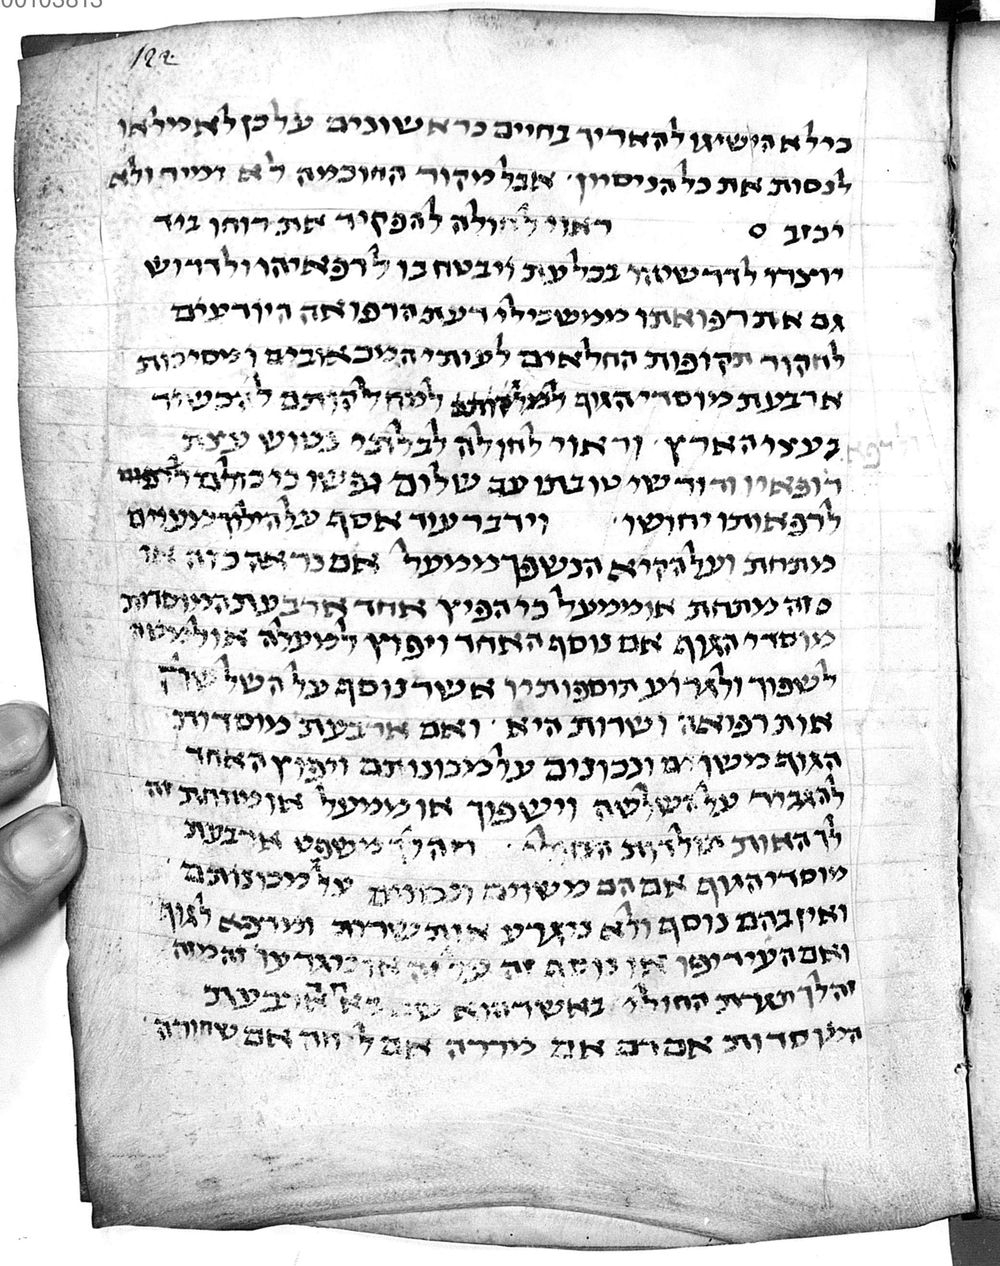 122
כי לא השיגו להאריך בחיים כראשונים על כן לא מלאו
לנסות את כל הניסיון׳ אבל מקור החוכמה לא דמיה ולא
יכזב ס ראוי לחולה להפקיר את רוחו ביד
יוצרו לדרשו בכל עת ויבטח בו לרפאיהו ולדרוש
גם את רפואתו ממשכילי דעת הרפואה היודעים
לחקור תקופות החלאים לעיתי המכאובים ומסיכות
ארבעת מוסדי הגוף למחלקותם להכשיר
בעצי הארץ׳ וראוי לחולה לבלתי נטוש עצת
רופאיו ודורשי טובתו עם שלום נפשו כי כולם
לרפאותו יחושו׳ וידבר עוד אסף על מעים
מתחת ועל הקיא הנשפך ממעל אם נראה כזה או
סזה מתחת או ממעל כי הפיץ אחד ארבעת המוסדות
מוסדי הגוף אם נוסף האחד ויפרץ למעלה או
לשפוך ולגרוע תוספותיו אשר נוסף על השלשה
אות רפואה ושרות היא׳ ואם ארבעת מוסדות
הגוף משוים ונכונים על מכונותם ויפרץ האחד
להגביר על השלשה וישפוך או ממעל או מתחת זה
לך האות תולדות החולי׳ זה לך משפט ארבעת
מוסדי הגוף אם הם משוים ונכונים על מכונותם
ואין בהם נוסף ולא ניגרע אות שרות ומרפא לגוף
ואם העדיפו או נוסף זה על זה או ניגרעו זה מזה
זה לך תגרת החולי׳ באשר הוא ארבעת
המוסדות אם דם אם מררה אם ליחה אם שחורה